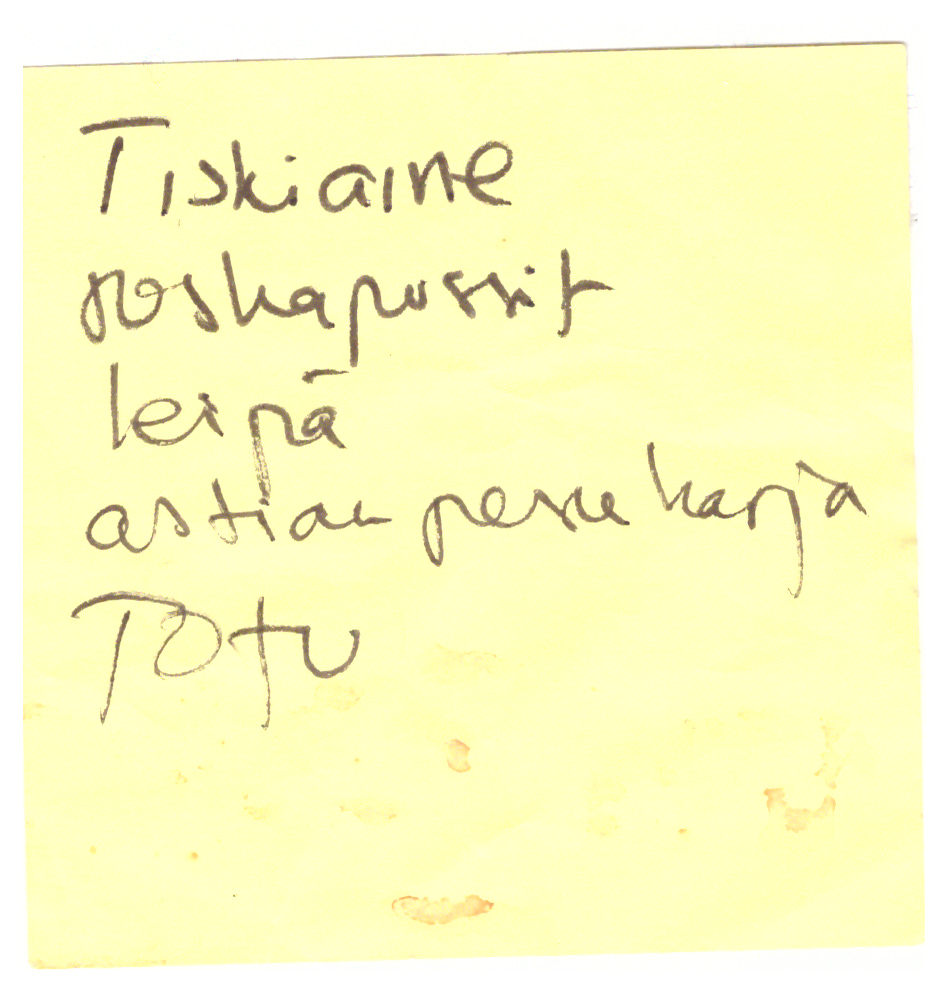 Tiskiaine
roskapussit
leipä
astian pesu harja
Tofu